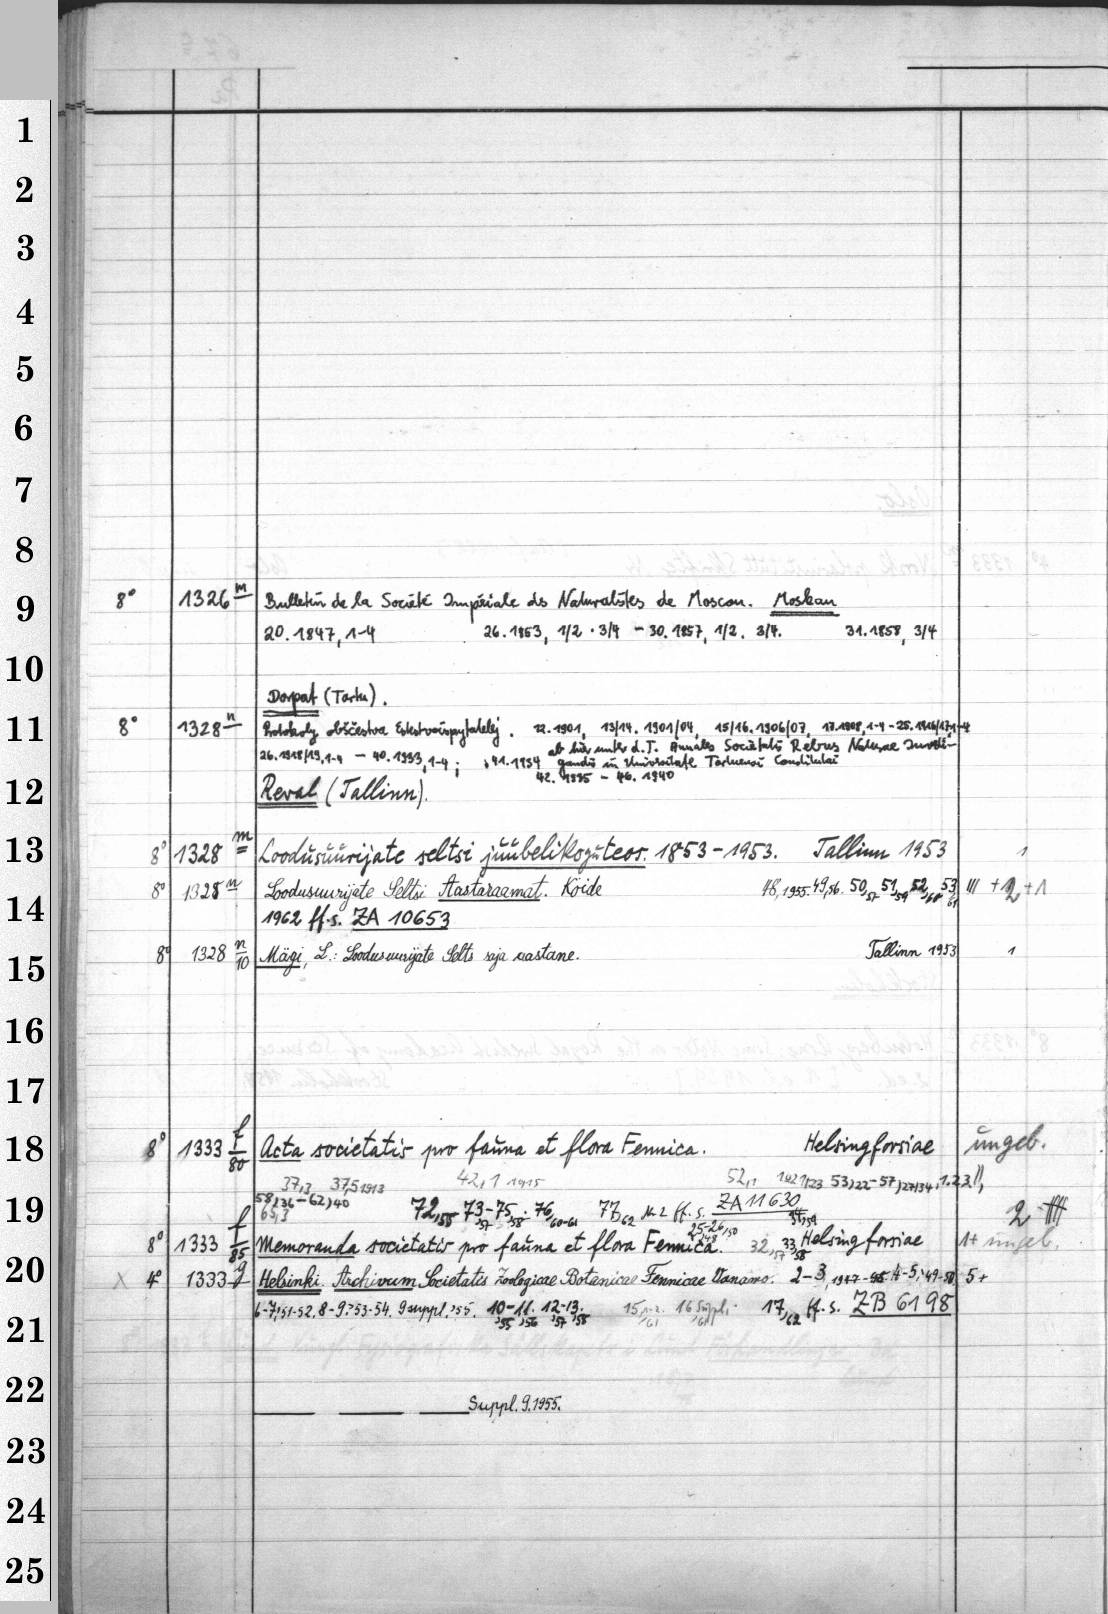 1
2
3
4
5
6
7
8
9 8° 1326 m Bulletin de la Société Impériale des Naturalistes de Moscou. Moskau
20. 1847, 1-4 26. 1853, 1/2 · 3/4 - 30. 1857, 1/2. 3/4. 31. 1858, 3/4
10
Dorpat (Tartu).
11 8° 1328 n Protokoly obščestva Estestvoispytatelej. 12. 1901, 13/14. 1901/04, 15/16. 1906/07, 17. 1908, 1-4 - 25. 1916/17, 1-4
ab hier unter d. T. Annales Societatis Rebus Naturae Investi-
26. 1918/19, 1-4 - 40. 1933, 1-4; 41. 1934 gandis in Universitate Tartuensi Constitutae
42. 1935 - 46. 1940
12 Reval (Tallinn).
13 8° 1328 m Loodusuurijate seltsi juubelikoguteos. 1853-1953. Tallinn 1953 1
8° 1328 n Loodusuurijate Seltsi Aastaraamat. Köide 48, 1955. 49, 56. 50, 57 51, 59 52, 60 53, 61 III + 2 + 1
14 1962 ff. s. ZA 10653
15 8° 1328 n/10 Mägi, L.: Loodusuurijate Selts saja aastane. Tallinn 1953 1
16
17
18 8° 1333 f/80 Acta societatis pro fauna et flora Fennica. Helsingforsiae ungeb.
37,3 37,5 1913 42,1 1915 52,1 1921/23 53,22-57,27/34, 1.2.3
58,36-62,40
19 63,3 72,55 73-75, 57 58. 76, 60-61 77,62 Nr. 2 ff. s. ZA 11630 2
8° 1333 f/85 Memoranda societatis pro fauna et flora Fennica. 25-26, 50 32, 57 33, 58 Helsingforsiae 1+ ungeb.
20 4° 1333 g Helsinki. Archivum Societatis Zoologicae Botanicae Fennicae Vanamo. 2-3, 1947-48 4-5, 49-50 5+
6-7, 51-52, 8-9, 53-54. 9 suppl., 55. 10-11, 55 56 12-13, 57 58 15,1-2, 61 16 Suppl. 61 17,62 ff. s. ZB 6198
21
22 Suppl. 9. 1955.
23
24
25